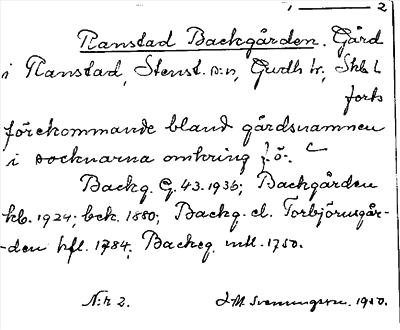 2
Ranstad Backgården. Gård
i Ranstad, Stenst. s:n, Gudh. hd, Skb. l
forts
förekommande bland gårdsnamnen
i socknarna omkring
Backg. G. 43. 1936; Backgården
kb. 1924; bek. 1880; Backg. el. Torbjörnsgår-
-den hfl. 1784; Backeg. mtl. 1750.
N:r 2.
1950.